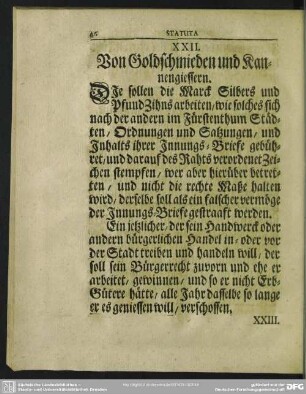 46 STATUTA
XXII.
Von Goldschmieden und Kan-
nengiessern.
DJe sollen die Marck Silbers und
Pfund Zihns arbeiten/ wie solches sich
nach der andern im Fürstenthum Städ-
ten/ Ordnungen und Satzungen/ und
Inhalts ihrer Innungs-Briefe gebüh-
ret/ und darauf des Rahts verordenet Zei-
chen stempfen/ wer aber hierüber betret-
ten/ und nicht die rechte Maße halten
wird/ derselbe soll als ein falscher vermöge
der Innungs-Briefe gestraaft werden.
Ein jetzlicher/ der sein Handwerck oder
andern bürgerlichen Handel in- oder vor
der Stadt treiben und handeln will/ der
soll sein Bürgerrecht zuvorn und ehe er
arbeitet/ gewinnen/ und so er nicht Erb-
Gütere hätte/ alle Jahr dasselbe so lange
er es geniessen will/ verschossen.
XXIII.